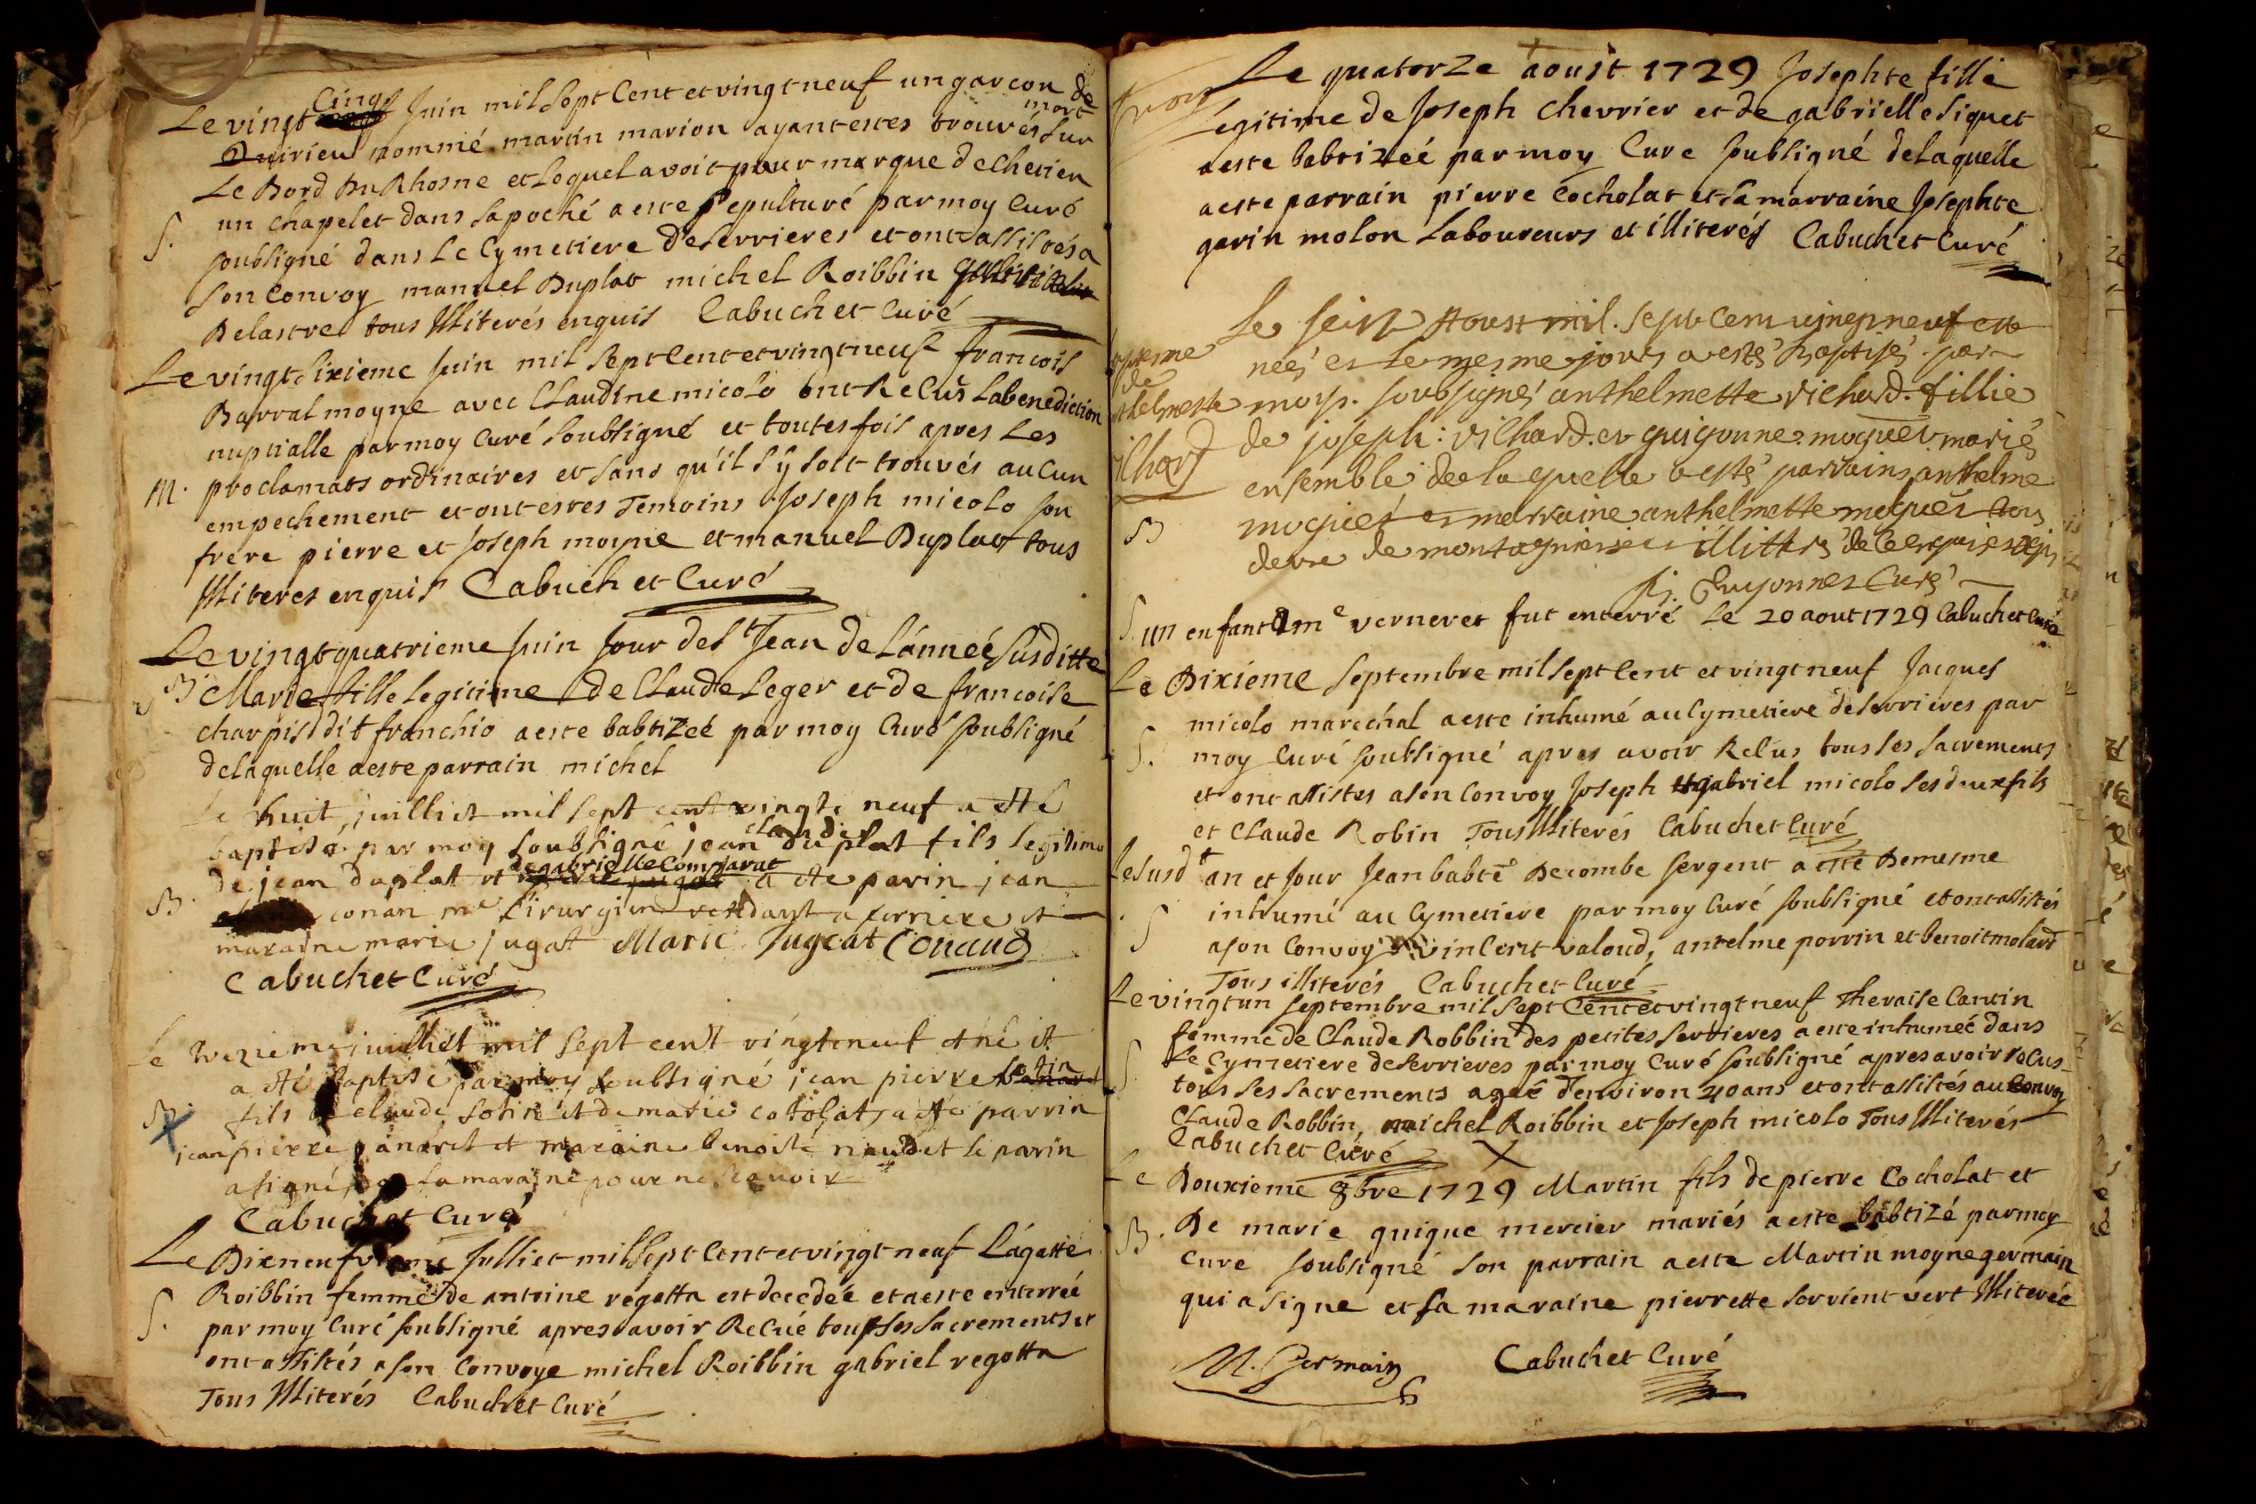 Le vingt cinq Juin mil sept cent et vingt neuf un garcon de
Quirieu nommé martin marion ayant estes trouvés mort sur
Le Bord Du Rhosne et lequel avoit pour marque de Chetien
un chapelet dans sa poché a este sepulturé par moy Curé
S.
soubsigné dans Le Cymetiere de serrieres et ont assistés a
son Convoy manuel Duplat michel Roibbin
Delastre tous Illiterés enquis Cabuchet Curé
Le vingt sixieme Juin mil sept Cent et vingt neuf francois
Barral moyne avec Claudine micolo ont Recus La benediction
nuptialle par moy Curé soubsigné et toutes fois apres Les
M. proclamats ordinaires et sans qu'il s'y soit trouvés aucun
empechement et ont estes Temoins Joseph micolo son
frere pierre et Joseph moyne et manuel Duplat tous
Illiteres enquis Cabuchet Curé
Le vingt quatrieme Juin Jour de st Jean de L'année susditte
B Marie fille legitime de Claude Leger et de francoise
charpis dit franchio a este babtizeé par moy Curé soubsigné
de laquelle a este parrain michel
Le huit juilliet mil sept cent vingt neuf a etté
baptise par moy soubsigné jean claude duplat fils legitime
de jean duplat et de gabrielle Comparat a ete parin jean
B. conan me Cirurgien residant a serriere et
maraine marie jugat Marie Jugeat Conand
Cabuchet Curé
Le treziemme juilliet mil sept cent vingt neuf et né et
a eté baptise par moy soubsigné jean pierre sotin
B. fils de claude sotin et de marie cotolat, a ete parrin
jean pierre panaret et maraine benoite naudet le parin
a signé la maraine pour ne scavoir
Cabuchet Curé
Le Dixneufvieme Julliet mil sept Cent et vingt neuf L'agatte
Roibbin femme de antoine regotta est decedée et a este enterrée
S. par moy Curé soubsigné apres avoir Recué tous ses sacrements et
ont assistés a son Convoye michel Roibbin gabriel regotta
Tous Illiterés Cabuchet Curé
Le quatorze aoust 1729 Josephte fille
legitime de Joseph Chevrier et de gabrielle siquet
a este babtizeé par moy Cure soubsigné de laquelle
a este parrain pierre Cocholat et sa marraine Josephte
garin molon Laboureurs et illiterés Cabuchet Curé
Le seize Aoust mil. sept cent vingt neuf est
neé et le mesme jours a esté baptisé par
moy. soubsigné anthelmette Vichard. fillie
de joseph: vichard. et guigonne moquet marié
ensemble de la quelle a esté parrains anthelme
B moquet et marraine anthelmette moquet tous
deux de montagnieu illitters de ce enquis
Guyonnet Curé
S. un enfant a me verneret fut enterré Le 20 aout 1729 Cabuchet Curé
Le Dixieme septembre mil sept Cent et vingt neuf Jacques
micolo marechal a este inhumé au Cymetiere de serrieres par
S. moy Curé soubsigné apres avoir Recus tous ses sacrements
et ont assistes a son Convoy Joseph et gabriel micolo ses deux fils
et Claude Robin Tous Illiterés Cabuchet Curé
Le susdt an et Jour Jean babte Decombe sergent a esté De mesme
S inhumé au Cymetiere par moy Curé soubsigné et ont assistés
a son Convoy vincent valoud, antelme porrin et benoit molard
Tous illiterés Cabuchet Curé
Le vingt un septembre mil sept Cent et vingt neuf Theraise Cantin
femme de Claude Robbin des petites serrieres a este inhumeé dans
S. Le Cymetiere de serrieres par moy Curé soubsigné apres avoir recus
tous ses sacrements ageé d'environ 40 ans et ont assistés au Convoy
Claude Robbin, michel Roibbin et Joseph micolo Tous Illiterés
Cabuchet Curé
Le Douxieme 8bre 1729 Martin fils de pierre Cocholat et
B. De marie guigue mercier mariés a este babtizé par moy
Cure soubsigné son parrain a este Martin moyne germain
qui a signe et sa maraine pierrette servient vert Illiterée
M. Germain Cabuchet Curé